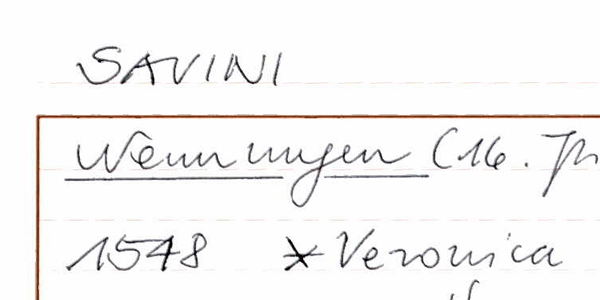 SAVINI
Wennungen (16. Jh
1548 * Veronica